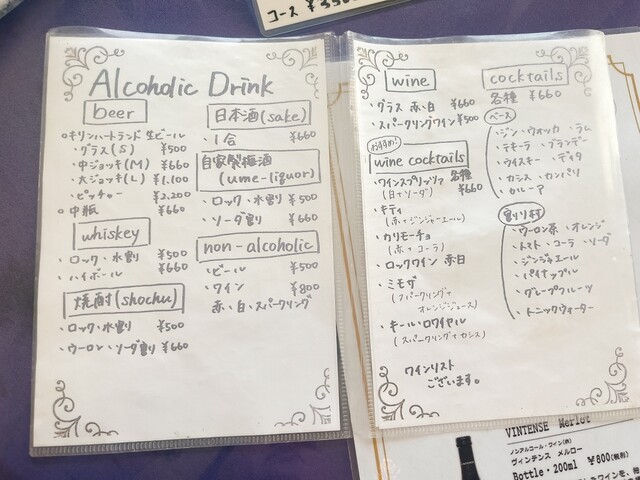 コース ¥3500
Alcoholic Drink
beer
○キリンハートランド 生ビール
・グラス(S) ¥500
・中ジョッキ(M) ¥660
・大ジョッキ(L) ¥1,100
・ピッチャー ¥2,200
○中瓶 ¥660
whiskey
・ロック・水割 ¥500
・ハイボール ¥660
焼酎(shochu)
・ロック・水割り ¥500
・ウーロン・ソーダ割り ¥660
日本酒(sake)
・1合 ¥660
自家製梅酒
(ume-liquor)
・ロック・水割り ¥500
・ソーダ割り ¥660
non-alcoholic
・ビール ¥500
・ワイン ¥800
赤・白・スパークリング
wine
・グラス 赤・白 ¥660
・スパークリングワイン ¥500
おすすめ!
wine cocktails
各種 ¥660
・ワインスプリッツァ
(白+ソーダ)
・キティ
(赤+ジンジャーエール)
・カリモーチョ
(赤+コーラ)
・ロックワイン 赤・白
・ミモザ
(スパークリング+
オレンジジュース)
・キール・ロワイヤル
(スパークリング+カシス)
ワインリスト
ございます。
cocktails
各種 ¥660
ベース
・ジン・ウォッカ・ラム
・テキーラ・ブランデー
・ウイスキー・ディタ
・カシス・カンパリ
・カルーア
割り材
・ウーロン茶・オレンジ
・トマト・コーラ・ソーダ
・ジンジャエール
・パイナップル
・グレープフルーツ
・トニックウォーター
VINTENSE Merlot
ノンアルコール・ワイン(赤)
ヴィンテンス メルロー
Bottle・200ml ¥800(税別)